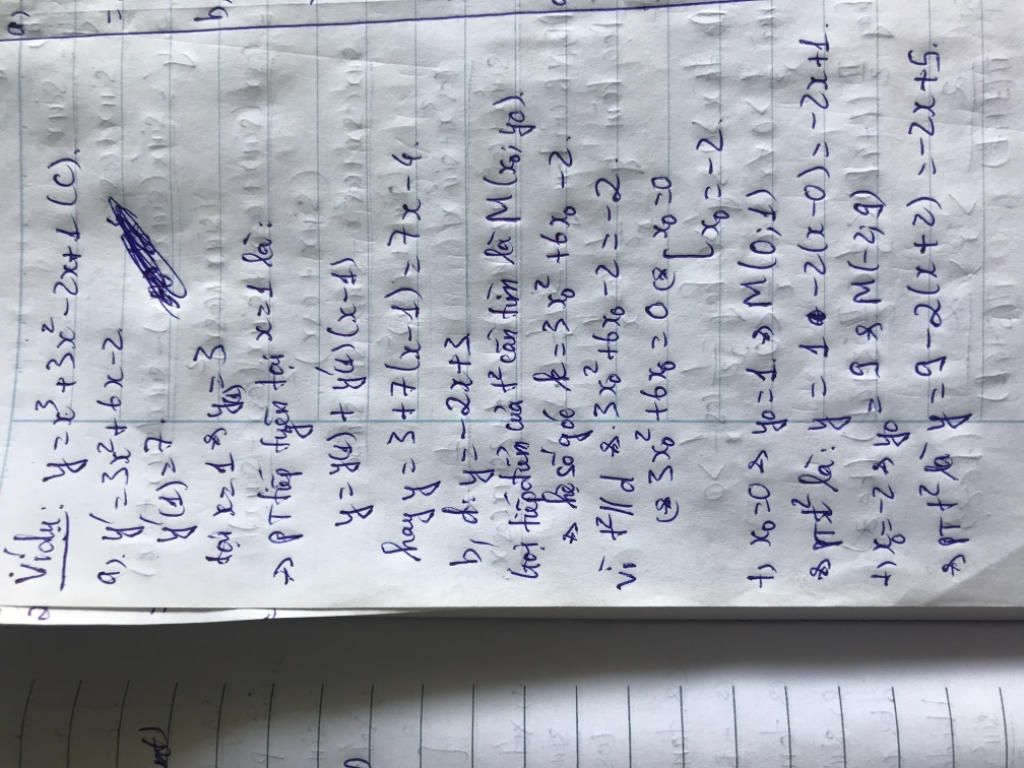 Ví dụ: y = x³ + 3x² - 2x + 1 (C).
a) y' = 3x² + 6x - 2
y'(1) = 7.
tại x = 1 ⇒ y(1) = 3
⇒ PT tiếp tuyến tại x = 1 là:
y = y(1) + y'(1)(x - 1)
hay y = 3 + 7(x - 1) = 7x - 4.
b, d: y = -2x + 3
Gọi tiếp điểm của t² cần tìm là M(x₀; y₀).
⇒ hệ số góc k = 3x₀² + 6x₀ - 2.
Vì t² // d ⇒ 3x₀² + 6x₀ - 2 = -2.
⇔ 3x₀² + 6x₀ = 0 ⇔ [ x₀ = 0
x₀ = -2.
+, x₀ = 0 ⇒ y₀ = 1 ⇒ M(0; 1)
⇒ PT t² là: y = 1 - 2(x - 0) = -2x + 1.
+, x₀ = -2 ⇒ y₀ = 9 ⇒ M(-2; 9)
⇒ PT t² là y = 9 - 2(x + 2) = -2x + 5.
a)
=
b,